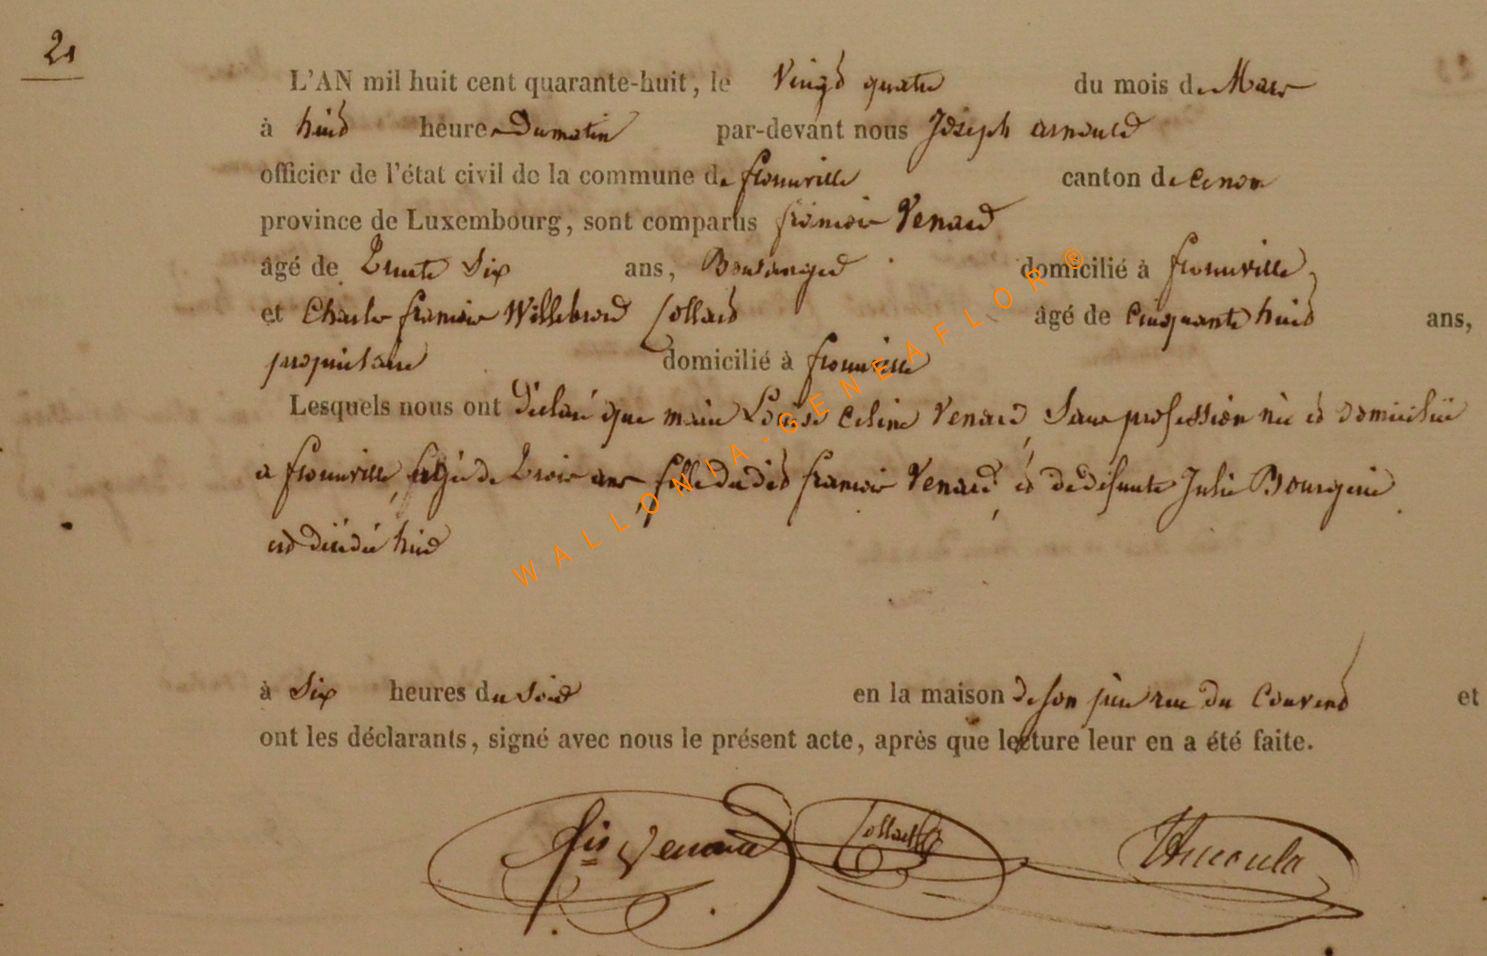 21
L'AN mil huit cent quarante-huit, le Vingt quatre du mois de Mars
à huit heures Du matin par-devant nous Joseph arnould
officier de l'état civil de la commune de fronville canton de
province de Luxembourg, sont comparus françois Venard
âgé de Trente Six ans, Boulanger domicilié à fronville,
et Charles françois Willebrord Collard âgé de Cinquante huit ans,
propriétaire domicilié à fronville
Lesquels nous ont Déclaré que marie Louise Celine Venard, Sans profession née et domiciliée
a fronville, agée de Trois ans fille du dit françois Venard, et de défunte Julie Bourgeois
est décédée hier
à Six heures du Soir en la maison de son père rue du Couvent et
ont les déclarants, signé avec nous le présent acte, après que lecture leur en a été faite.
fois Venard Collard JArnould
WALLONIA-GENEAFLOR®